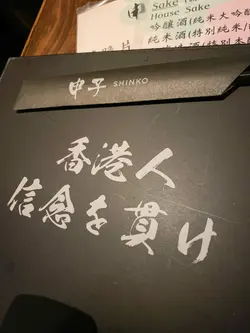 申 Sake
House Sake
吟醸酒(純米大吟
純米酒(特別純米/
申子 SHINKO
香港人
信念を貫け